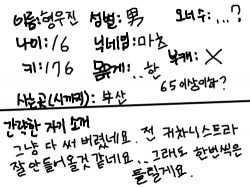 이름:형우진 성별:男 오너수:...?
나이:16 닉네임:마츠
키:176 몸무게:..한 65이상이하? 북캐:X
사는곳(시까지):부산
간략한 자기 소개
그냥 다 써 버렸네요. 전 귀차니스트라
잘안들어올것 같네요..그래도 한번씩은
들릴게요.